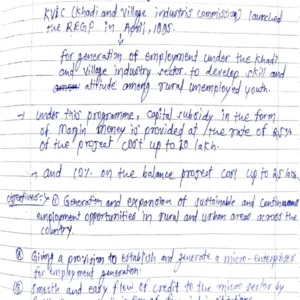 KVIC (Khadi and village industris commission) launched
the REGP in April, 1995.
for generation of employment under the khadi
and village industry sector to develop skill and
attitude among rural unemployed youth.
→ under this programme, capital subsidy in the form
of Margin Money is provided at the rate of 25%
of the project cost up to 10 lakh.
→ and 10% on the balance project cost up to 25 lakh.
objectives:- ① Generation and expansion of sustainable and continuous
employment opportunities in rural and urban areas across the
country.
② Giving a provision to establish and generate a micro-enterprises
for employment generation.
③ Smooth and easy flow of credit to the micro sector by